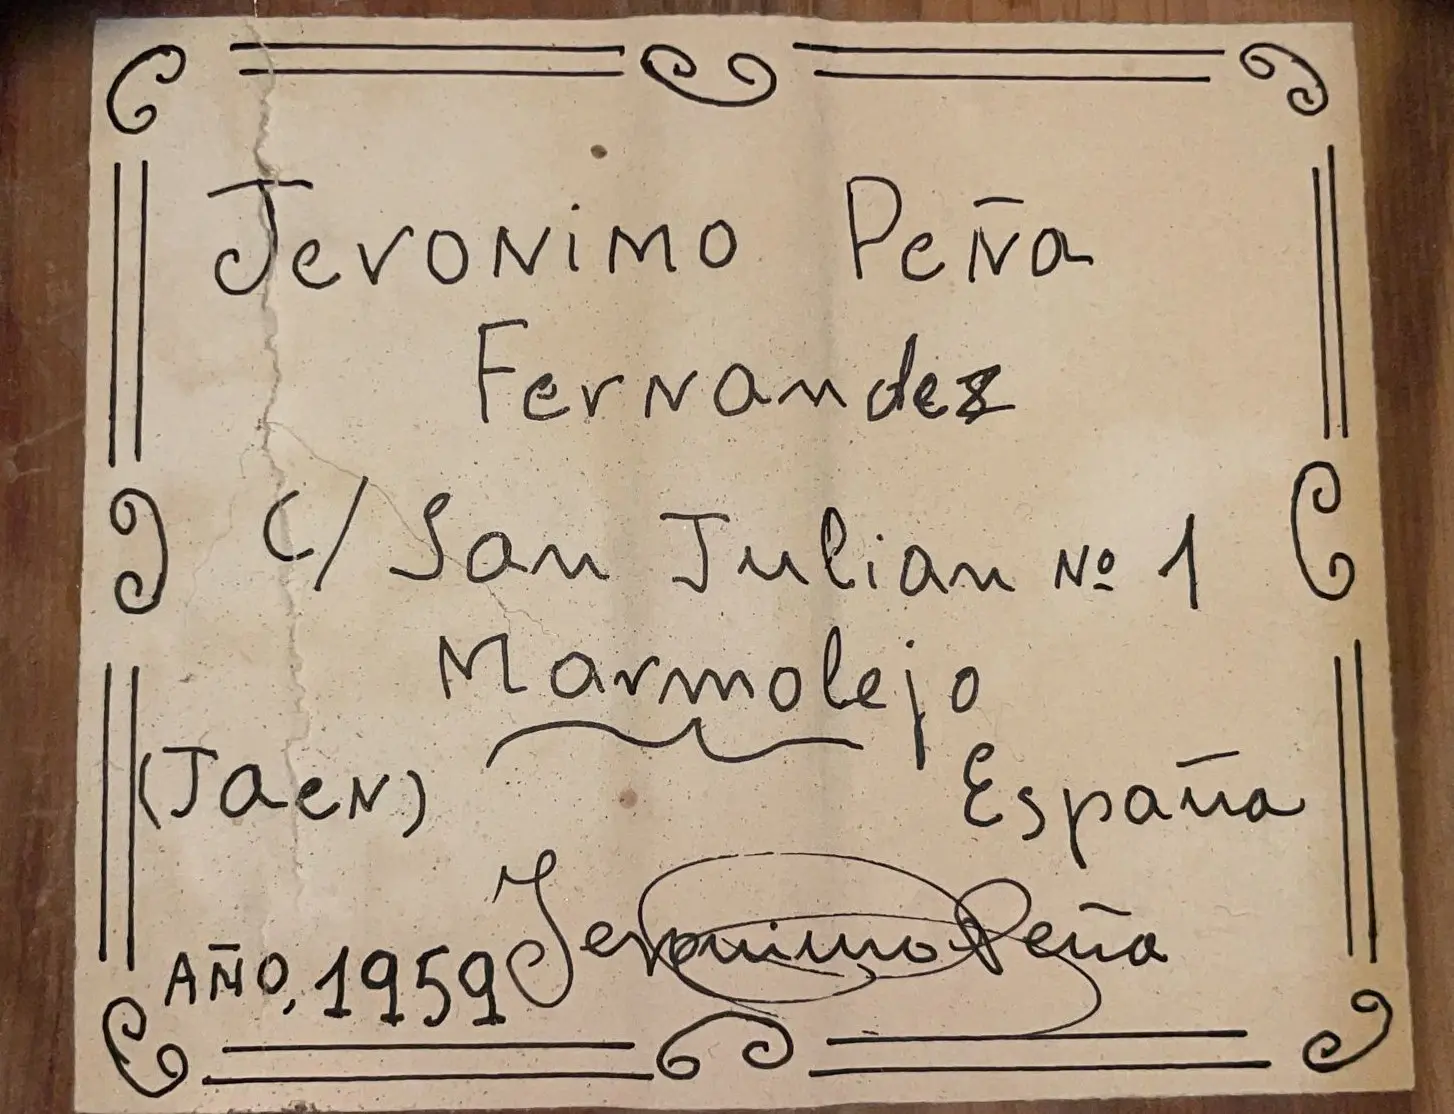 Jeronimo Peña
Fernandez
C/ San Julian Nº 1
Marmolejo
(Jaen) España
AÑO, 1959 Jeronimo Peña